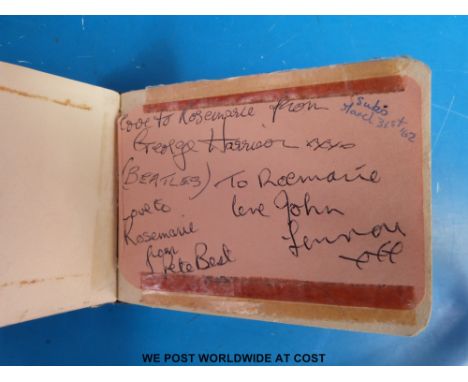 Love to Rosemarie from
George Harrison xxxx
(BEATLES)
Subs
March 31st '62
To Rosemarie
love John
Lennon
xoff
Love to
Rosemarie
from
Pete Best
WE POST WORLDWIDE AT COST